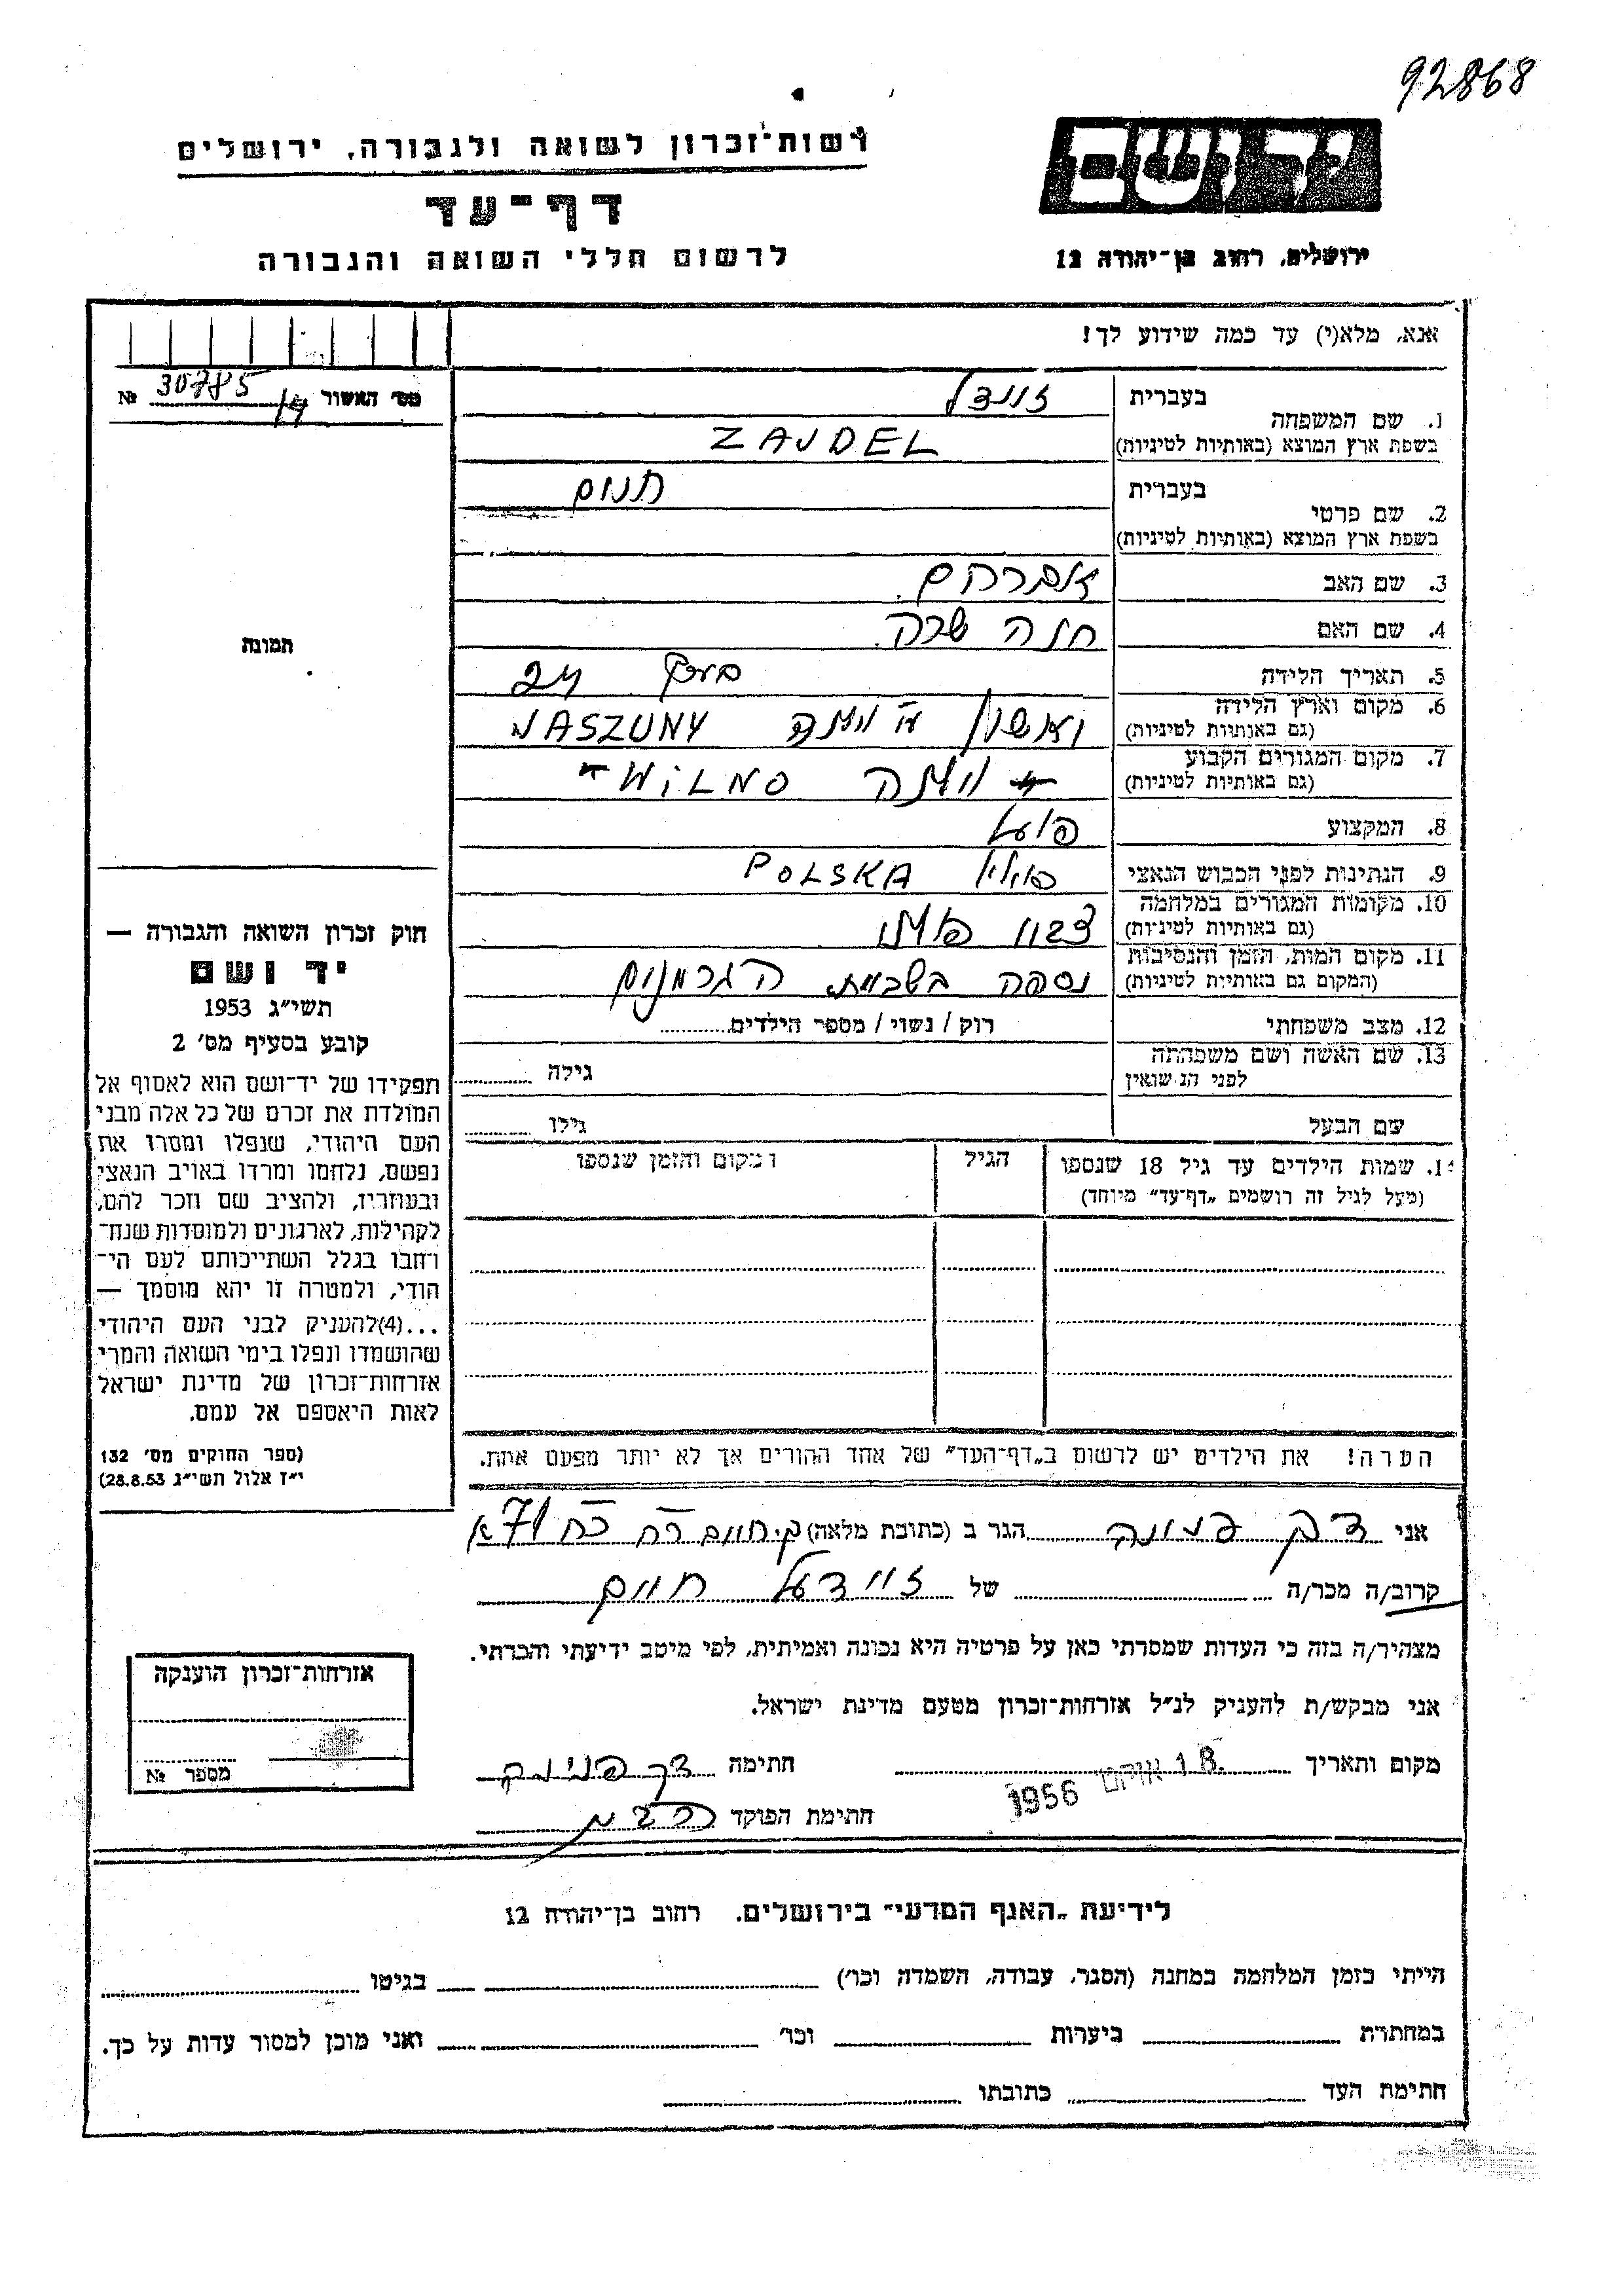 92868
רשות־זכרון לשואה ולגבורה, ירושלים
דף־עד
לרשום חללי השואה והגבורה
יד ושם
ירושלים, רחוב בן־יהודה 12
אנא, מלא(י) עד כמה שידוע לך!
מס׳ האשור 30785 № 14
1. שם המשפחה
בעברית זיידל
בשפת ארץ המוצא (באותיות לטיניות) ZAJDEL
2. שם פרטי
בעברית חיים
בשפת ארץ המוצא (באותיות לטיניות)
3. שם האב אברהם
4. שם האם חנה שרה
5. תאריך הלידה בערך 24
6. מקום וארץ הלידה
(גם באותיות לטיניות) וילנה NASZUNY
7. מקום המגורים הקבוע
(גם באותיות לטיניות) וילנה WILNO
8. המקצוע פועל
9. הנתינות לפני הכבוש הנאצי פולין POLSKA
10. מקומות המגורים במלחמה
(גם באותיות לטיניות) צבא פולני
11. מקום המות, הזמן והנסיבות
(המקום גם באותיות לטיניות) נספה הגרמנים
12. מצב משפחתי רוק / נשוי / מספר הילדים
13. שם האשה ושם משפחתה
לפני הנשואין גילה
שם הבעל גילו
שמות הילדים עד גיל 18 שנספו הגיל מקום והזמן שנספו
(מעל לגיל זה רושמים „דף־עד״ מיוחד)
הערה! את הילדים יש לרשום ב„דף־העד״ של אחד ההורים אך לא יותר מפעם אחת.
תמונה
חוק זכרון השואה והגבורה —
יד ושם
תשי״ג 1953
קובע בסעיף מס׳ 2
תפקידו של יד־ושם הוא לאסוף אל
המולדת את זכרם של כל אלה מבני
העם היהודי, שנפלו ומסרו את
נפשם, נלחמו ומרדו באויב הנאצי
ובעוזריו, ולהציב שם וזכר להם,
לקהילות, לארגונים ולמוסדות שנח־
רבו בגלל השתייכותם לעם הי־
הודי, ולמטרה זו יהא מוסמך —
...(4)להעניק לבני העם היהודי
שהושמדו ונפלו בימי השואה והמרי
אזרחות־זכרון של מדינת ישראל
לאות היאספם אל עמם.
(ספר החוקים מס׳ 132
י״ז אלול תשי״ג 28.8.53)
אני דב פנינה הגר ב (כתובת מלאה) ק. חיים
קרוב/ה מכר/ה של זיידל חיים
מצהיר/ה בזה כי העדות שמסרתי כאן על פרטיה היא נכונה ואמיתית, לפי מיטב ידיעתי והכרתי.
אני מבקש/ת להעניק לנ״ל אזרחות־זכרון מטעם מדינת ישראל.
מקום ותאריך 18 1956 חתימה דב פנינה
חתימת הפוקד
אזרחות־זכרון הוענקה
מספר №
לידיעת „האגף המדעי״ בירושלים, רחוב בן־יהודה 12
הייתי בזמן המלחמה במחנה (הסגר, עבודה, השמדה וכו׳) בגיטו
במחתרת ביערות וכו׳ ואני מוכן למסור עדות על כך.
חתימת העד כתובתו